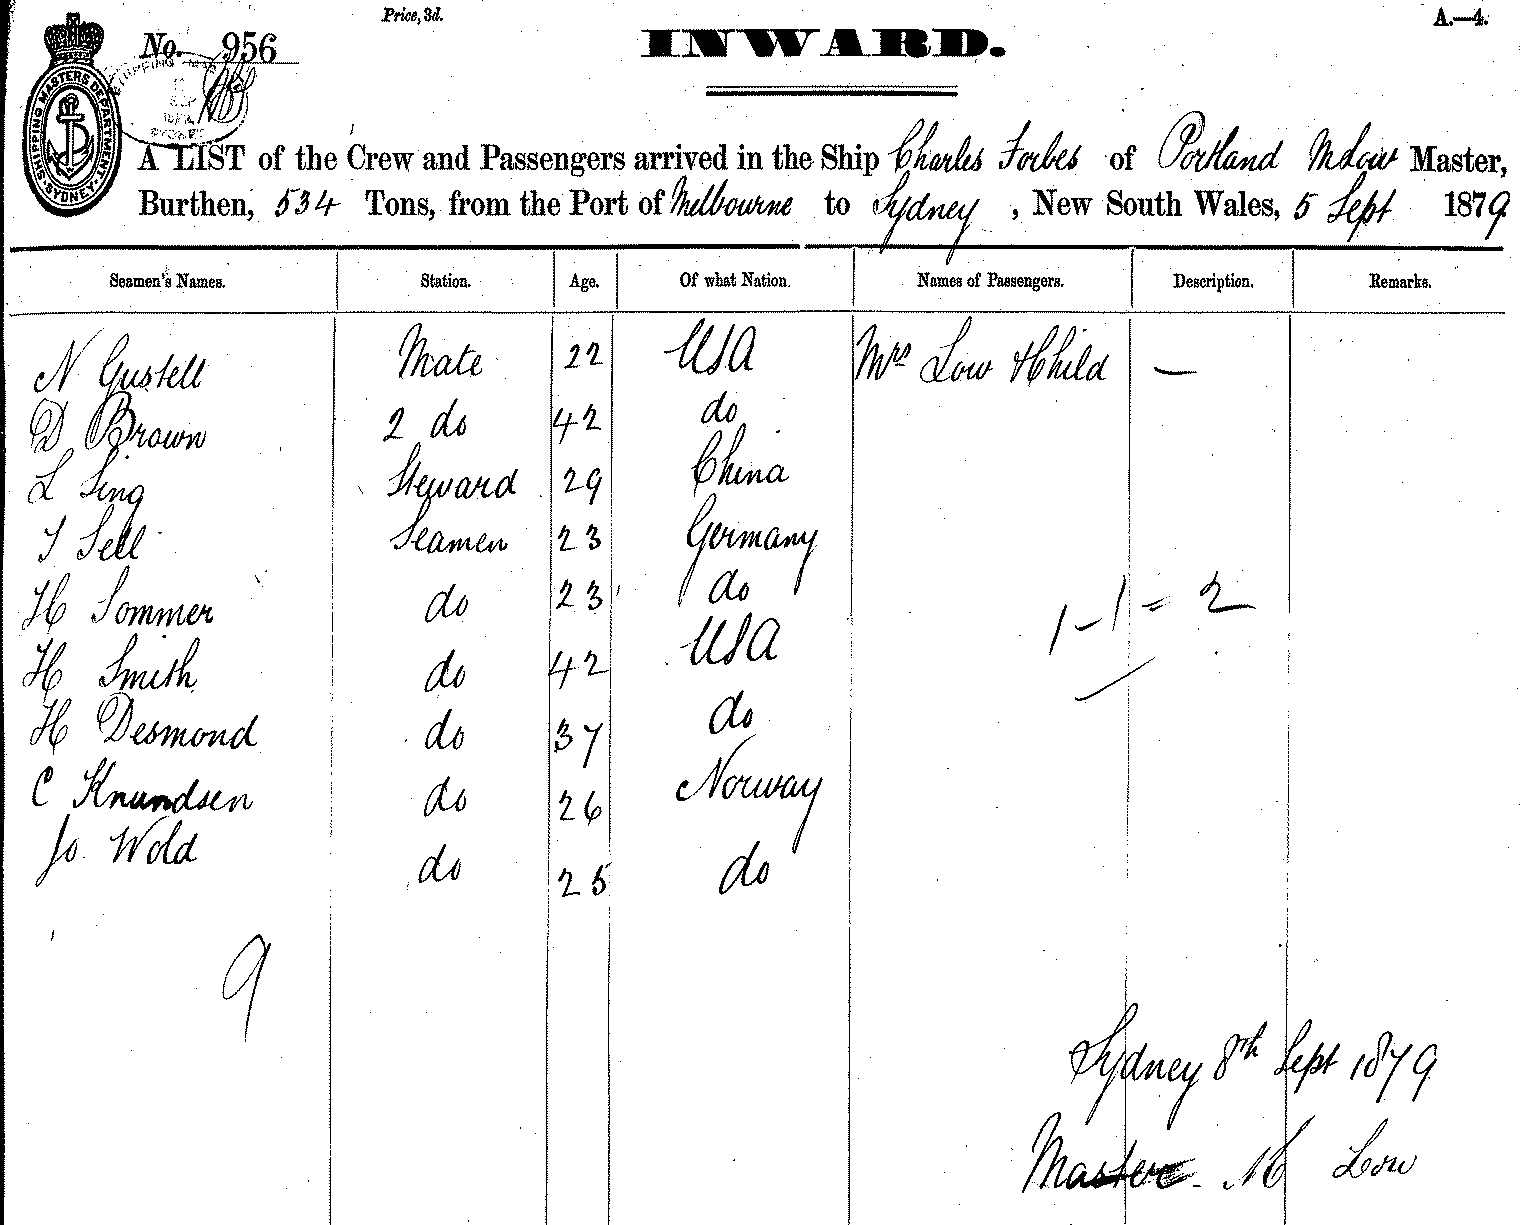 Price, 3d.
A.—4.
No. 956
INWARD.
SHIPPING MASTERS DEPARTMENT SYDNEY
A LIST of the Crew and Passengers arrived in the Ship Charles Forbes of Portland M Low Master,
Burthen, 534 Tons, from the Port of Melbourne to Sydney, New South Wales, 5 Sept 1879
Seamen's Names. Station. Age. Of what Nation. Names of Passengers. Description. Remarks.
N Gustell Mate 22 USA Mrs Low & Child —
D Brown 2 do 42 do
L Sing Steward 29 China
T Sell Seamen 23 Germany
H Sommer do 23 do
1 - 1 = 2
H Smith do 42 USA
H Desmond do 37 do
C Knundsen do 26 Norway
Jo Wold do 25 do
9
Sydney 8th Sept 1879
Master M Low